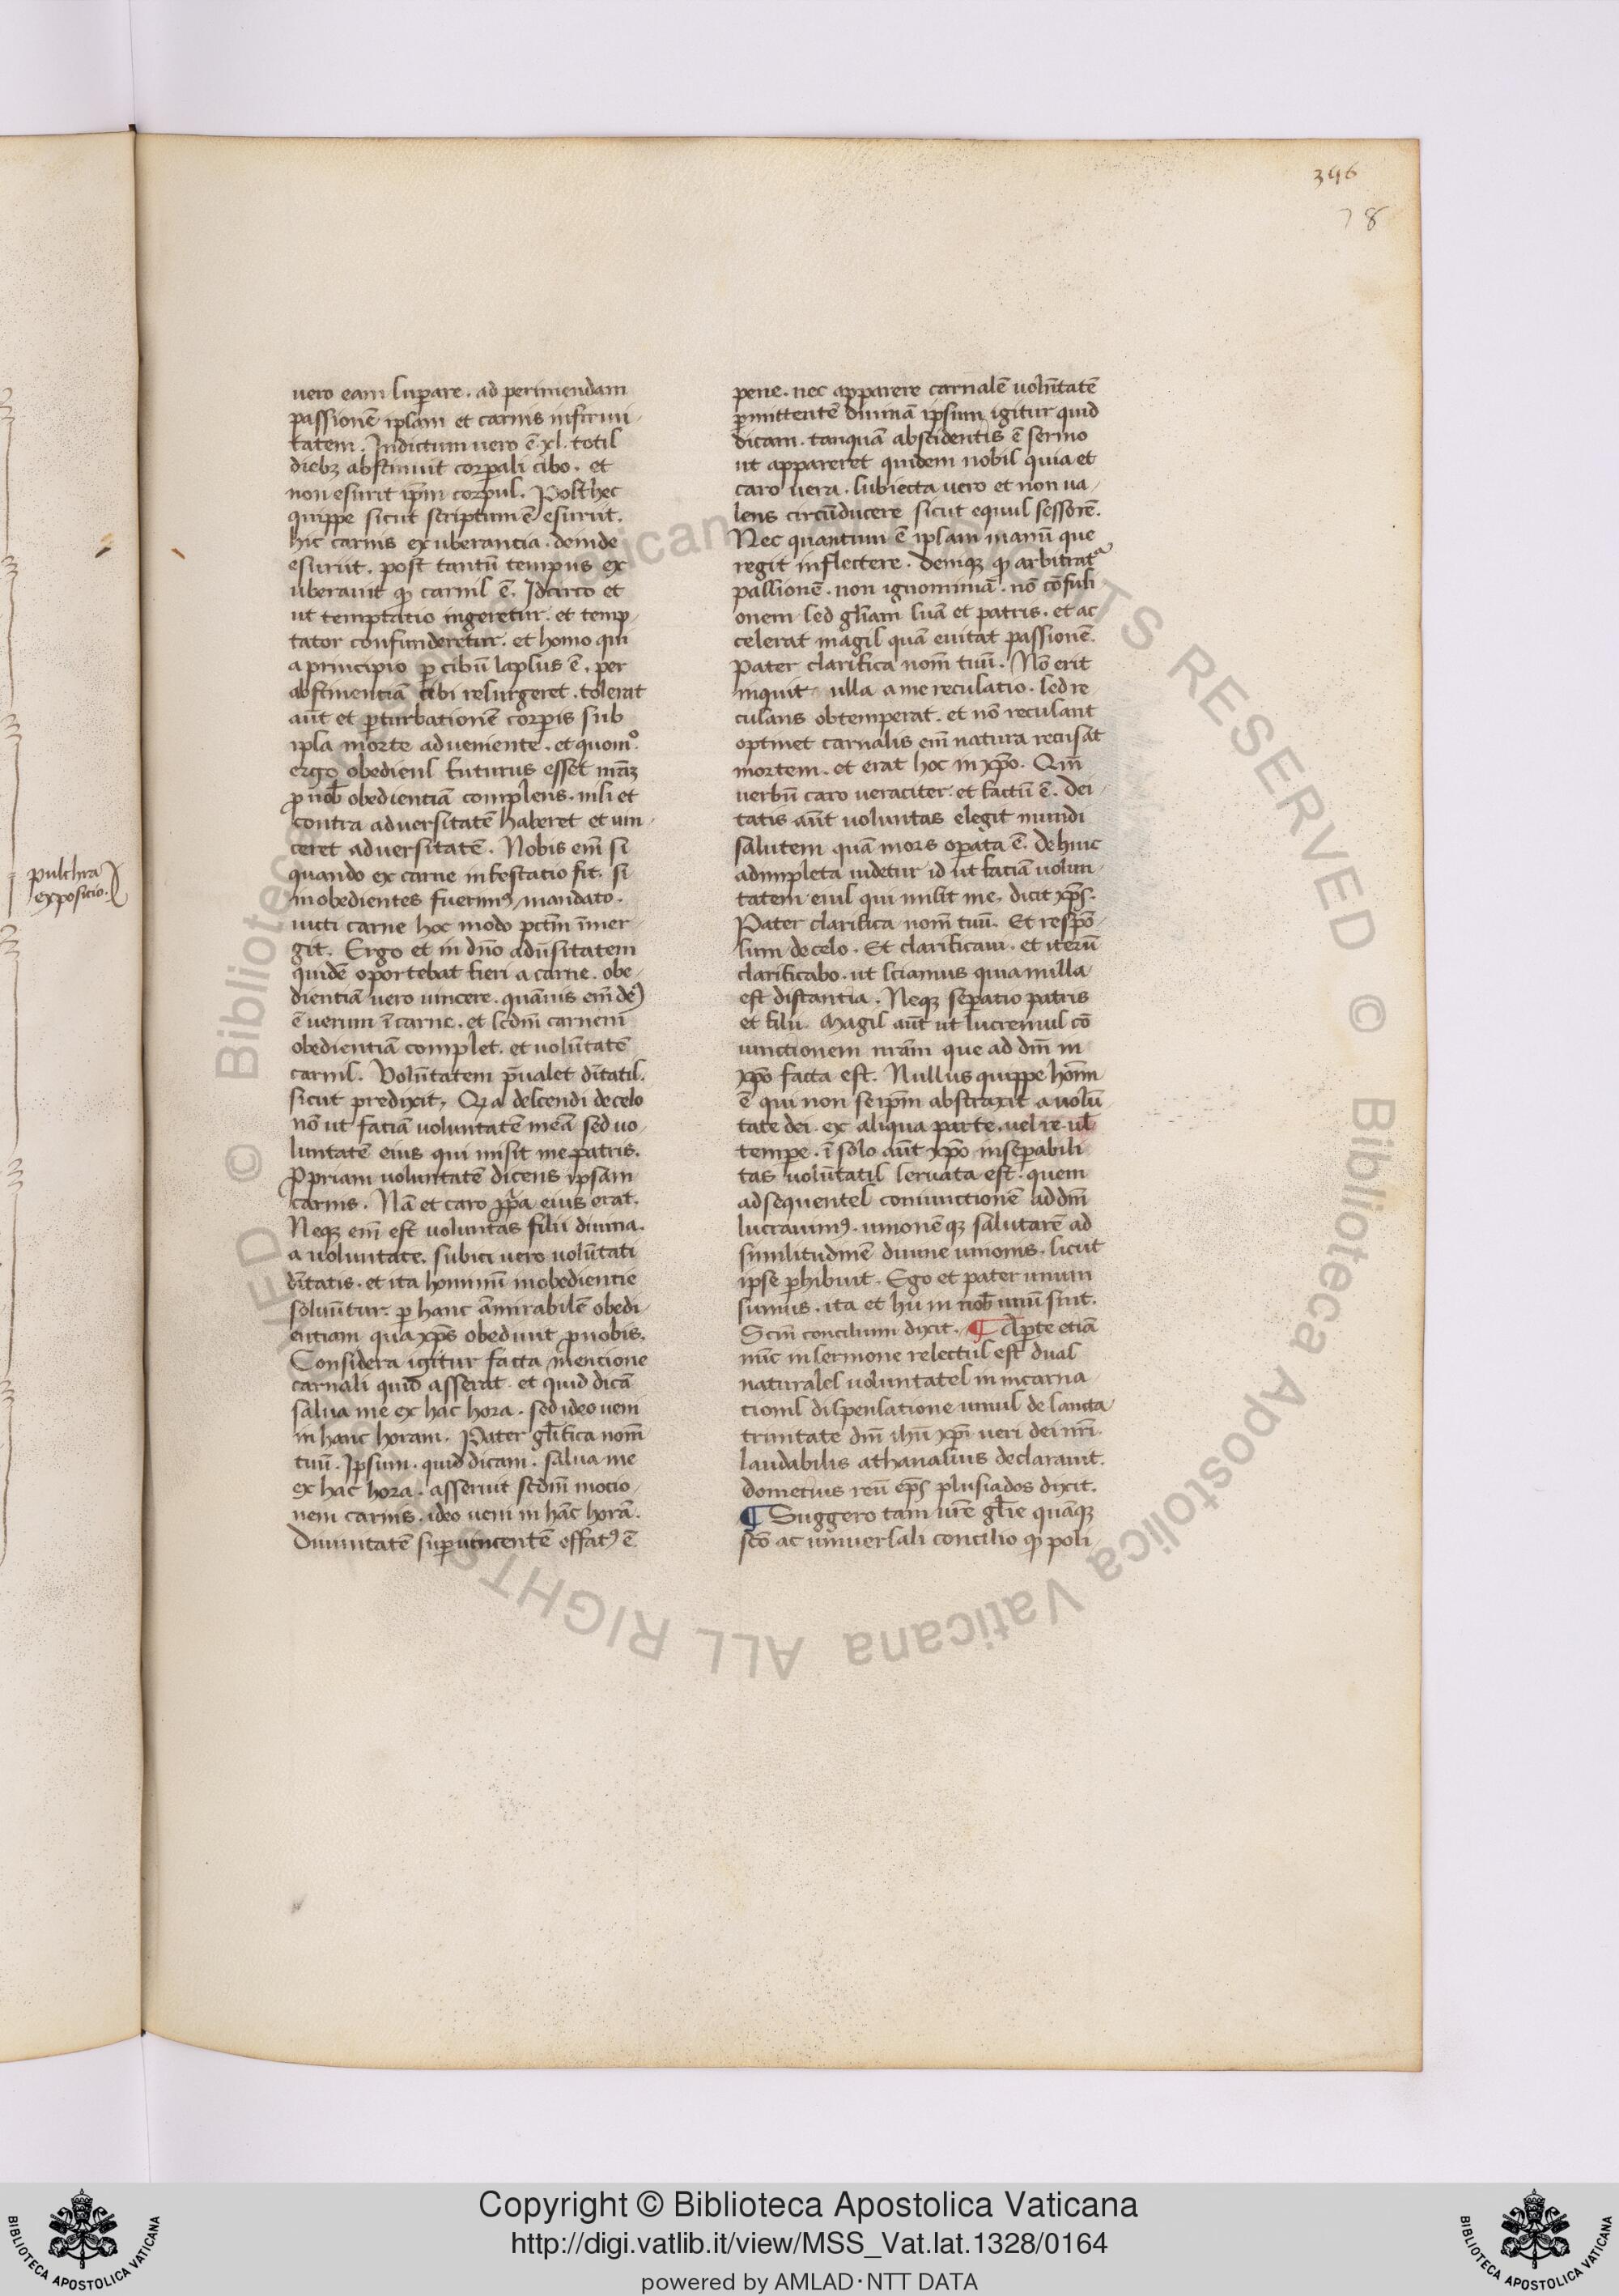 396
78
pulchra
expositio.
vero eam superare. ad perimendam
passionē ipsam et carnis infirmi
tatem. Indictum vero ē. xl. totis
dieb₃ abstinuit corp̄ali cibo. et
non esuriit ip̄m corpus. Post hec
quippe sicut scriptum ē esuriit.
hic carnis exuberancia. deinde
esuriit. post tantū tempus ex
uberavit qᷓ carnis ē. Idcirco et
ut temptatio ingeretur. et temp
tator confunderetur. et homo qui
a principio p̱ cibū lapsus ē. per
abstinentiā cibi resurgeret. tolerat
aūt et p̱turbationē corp̄is sub
ipsa morte adveniente. et quomᵒ
ergo obediens futurus esset
ꝓ nob̄ obedientiā complens. nisi et
contra adversitatē haberet et vin
ceret adversitatē. Nobis em̄ si
quando ex carne infestatio fit. si
inobedientes fuerimꝰ mandato.
victi carne hoc modo pctm̄ īmer
git. Ergo et in dn̄o adūsitatem
quidē oportebat fieri a carne. obe
dientiā vero vincere. quāvis em̄ deꝰ
ē verum ī carne. et scdm̄ carnem
obedientiā complet. et volūtatē
carnis. Volūtatem p̄valet dītatis.
sicut predixit, Qꝛa descendi de celo
nō ut faciā voluntatē meā sed vo
luntatē eius qui misit me patris.
Ꝓpriam voluntatē dicens ipsam
carnis. Nā et caro ꝓpͥa eius erat.
Neqꝫ em̄ est voluntas filii divina.
a voluntate. subici vero volūtati
dītatis. et ita hominū inobedientie
solvūtur. p̱ hanc āmirabilē obedi
entiam qua xp̄s obedivit ꝓ nobis.
Considera igitur facta mencione
carnali quid asserat. et quid dicā
salva me ex hac hora. sed ideo veni
in hanc horam. Pater gl̄ifica nom̄
tuū. Ipsum. quid dicam. salva me
ex hac hora. asseruit scdm̄ mocio
nem carnis. ideo veni in hāc horā.
Divinitatē sup̱vincentē effatꝰ ē
pene. nec apparere carnalē volūtatē
p̱mittentē divinā ipsum igitur quid
dicam. tanquā abscidentis ē sermo
ut appareret quidem nobis quia et
caro vera. subiecta vero et non va
lens circūducere sicut equus sessorē.
Nec quantum ē ipsam manū que
regit inflectere. deniqꝫ qᷓ arbitrat᷑
passionē. non ignominiā. nō cōfusi
onem sed gl̄iam suā et patris. et ac
celerat magis quā evitat passionē.
Pater clarifica nom̄ tuū. Nō erit
inquit ulla a me recusatio. sed re
cusans obtemperat. et nō recusans
optinet carnalis em̄ natura recusat
mortem. et erat hoc in xp̄o. Qm̄
verbū caro veraciter et factū ē. dei
tatis aūt voluntas elegit mundi
salutem quā mors op̱ata ē. de hinc
adimpleta videtur id ut faciā volun
tatem eius qui misit me. dicit xp̄s.
Pater clarifica nom̄ tuū. Et respō
sum de celo. Et clarificavi. et iterū
clarificabo. ut sciamus quia nulla
est distantia. Neqꝫ sep̱atio patris
et filii. Magis aūt ut lucremus cō
iunctionem nr̄am que ad dm̄ in
xp̄o facta est. Nullus quippe homīn
ē qui non se ip̄m abstraxit a volū
tate dei. ex aliqua parte. vel re vl̄
tempe. ī solo aūt xp̄o insep̱abili
tas volūtatis servata est. quem
ad sequentes coniunctionē ad dm̄
lucravimꝰ. unionēqꝫ salutarē ad
similitudinē divine unionis. sicut
ipse p̱hibuit. Ego et pater unum
sumus. ita et hii in nob̄ unū sint.
Scm̄ concilium dixit. ¶ Ap̱te etiā
nūc in sermone relectus est duas
naturales voluntates in incarna
tionis dispensatione unius de sancta
trinitate dn̄i ihū xp̄i veri dei nr̄i.
laudabilis athanasius declaravit.
dometius reū ep̄s plusiados dixit.
¶ Suggero tam vr̄e gl̄ie quāqꝫ
sc̄o ac universali concilio qᷓ poli
Copyright © Biblioteca Apostolica Vaticana
http://digi.vatlib.it/view/MSS_Vat.lat.1328/0164
powered by AMLAD·NTT DATA
BIBLIOTECA APOSTOLICA VATICANA
BIBLIOTECA APOSTOLICA VATICANA
© Biblioteca Apostolica Vaticana ALL RIGHTS RESERVED